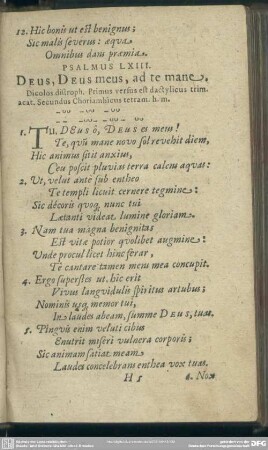 12. Hic bonis ut est benignus;
Sic malis severus: æqua
Omnibus dans præmia.
PSALMUS LXIII.
DEUS, DEUS meus, ad te mane.
Dicolos distroph. Primus versus est dactylicus trim.
acat. Secundus Choriambicus tetram. h. m.
1. TU, DEUS ô, DEUS es mem!
Te, qvũ mane novo sol revehit diem,
Hic animus sitit anxius,
Ceu poscit pluvias terra calens aquas:
2. Ut, velut ante sub entheo
Te templi licuit cernere tegmine:
Sic decoris quoq, nunc tui
Lætanti videat lumine gloriam.
3. Nam tua magna benignitas
Est vitæ potior qvolibet augmine:
Unde procul licet hinc ferar,
Te cantare tamen mens mea concupit.
4. Ergo superstes ut hic erit
Vivus langvidulis spiritus artubus;
Nominis usq, memor tui,
In laudes abeam, summe DEUS, tuas.
5. Pingvis enim veluti cibus
Enutrit miseri viscera corporis;
Sic animam satiat meam
Laudes concelebrans enthea vox tuas.
H 5
6. Nox